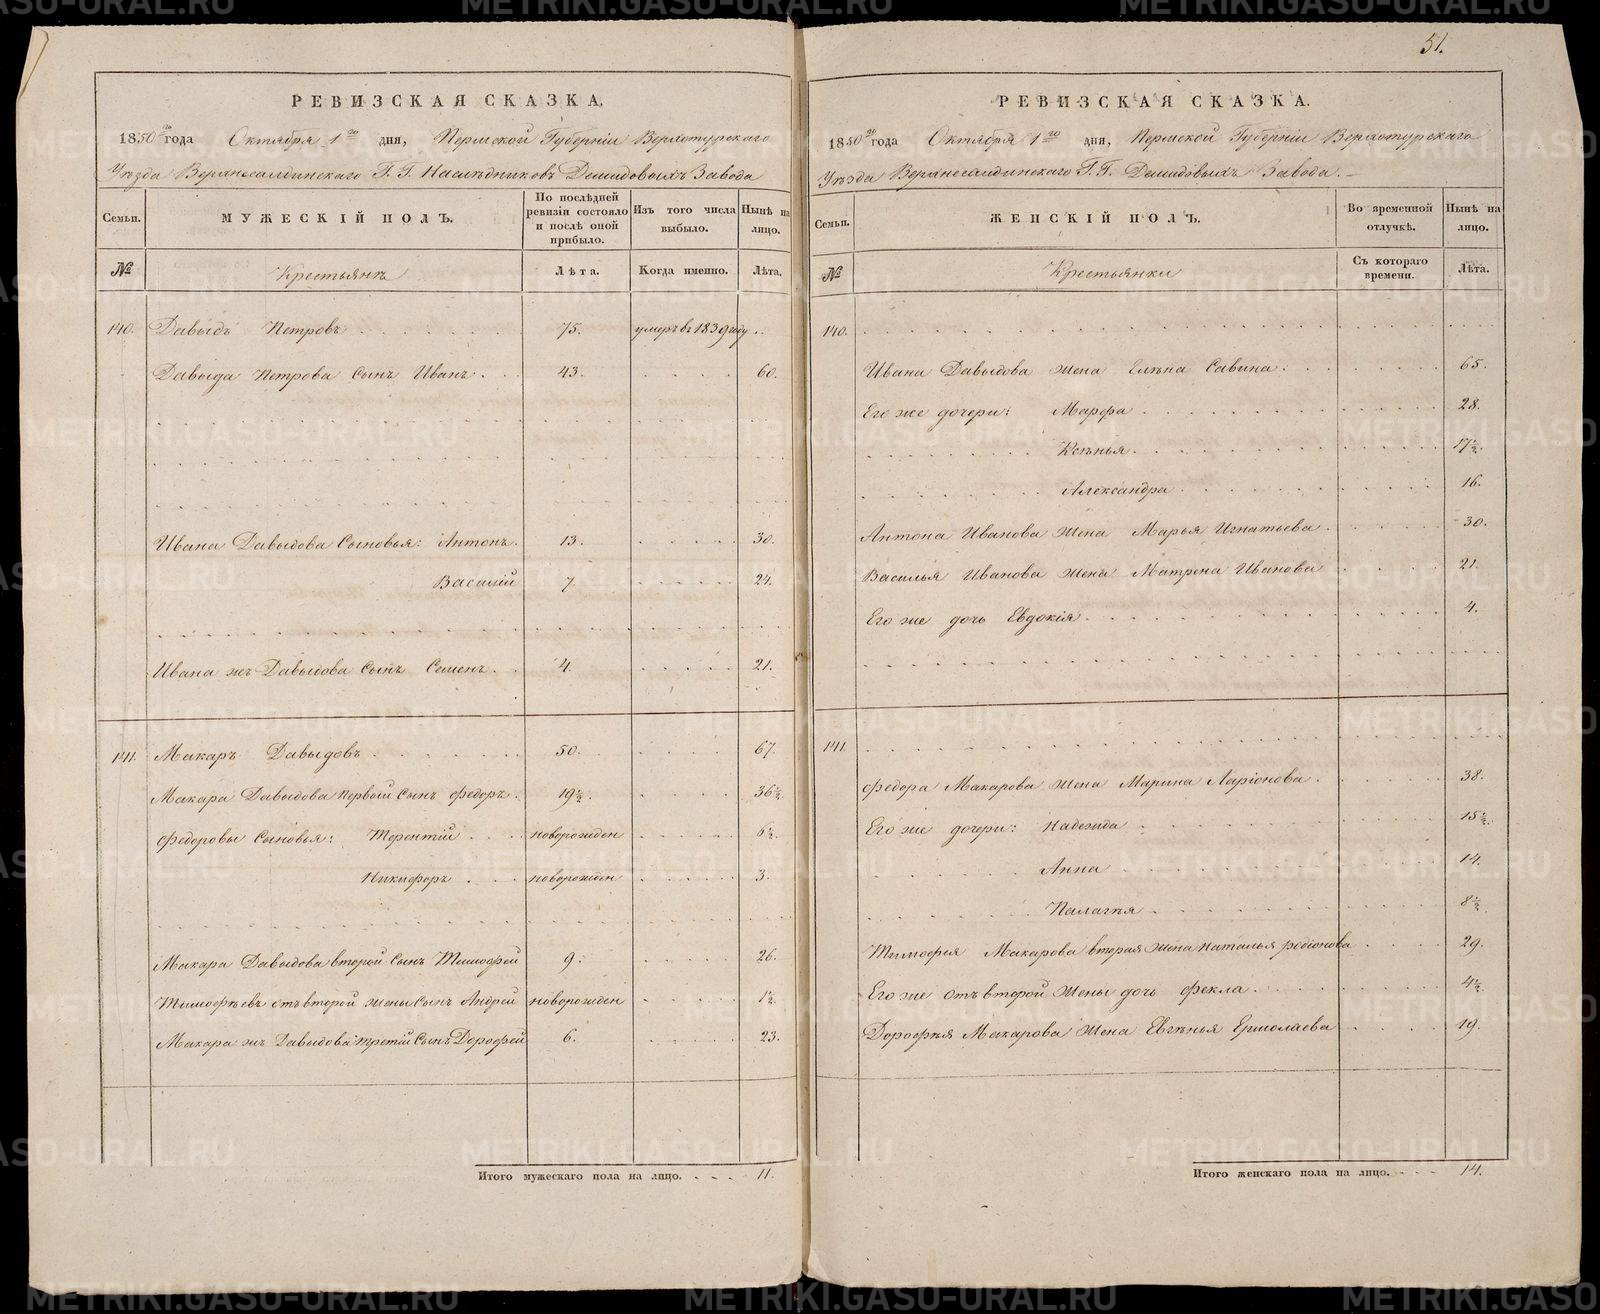 51.
РЕВИЗСКАЯ СКАЗКА.
1850го года Октября 1го дня, Пермской Губерніи Верхотурскаго
Уѣзда Верхнесалдинскаго Г. Г. Наслѣдниковъ Демидовыхъ Завода
Семьи. МУЖЕСКІЙ ПОЛЪ. По послѣдней ревизіи состояло и послѣ оной прибыло. Изъ того числа выбыло. Нынѣ на лицо.
№ Крестьянъ Лѣта. Когда именно. Лѣта.
140. Давыдъ Петровъ 75. умеръ въ 1839 году
Давыда Петрова Сынъ Иванъ 43. 60.
Ивана Давыдова Сыновья: Антонъ 13. 30.
Василій 7. 24.
Ивана жъ Давыдова Сынъ Семенъ 4. 21.
141. Макаръ Давыдовъ 50. 67.
Макара Давыдова первый Сынъ Федоръ 19½. 36½.
Федоровы Сыновья: Терентій новорожден 6½.
Никифоръ новорожден 3.
Макара Давыдова второй Сынъ Тимофей 9. 26.
Тимофѣевъ отъ второй жены Сынъ Андрей новорожден 1½.
Макара жъ Давыдова третій Сынъ Дорофей 6. 23.
Итого мужескаго пола на лицо. 11.
РЕВИЗСКАЯ СКАЗКА.
1850го года Октября 1го дня, Пермской Губерніи Верхотурскаго
Уѣзда Верхнесалдинскаго Г. Г. Демидовыхъ Завода.
Семьи. ЖЕНСКІЙ ПОЛЪ. Во временной отлучкѣ. Нынѣ на лицо.
№ Крестьянки Съ котораго времени. Лѣта.
140.
Ивана Давыдова жена Елѣна Савина 65.
Его же дочери: Марфа 28.
Ксѣнья 17½.
Александра 16.
Антона Иванова жена Марья Игнатьева 30.
Василья Иванова жена Матрена Иванова 21.
Его же дочь Евдокія 4.
141.
Федора Макарова жена Марина Ларіонова 38.
Его же дочери: Надежда 15½.
Анна 14.
Палагѣя 8½.
Тимофея Макарова вторая жена Наталья родіонова 29.
Его же отъ второй жены дочь Фекла 4½.
Дорофѣя Макарова жена Евгѣнья Ермолаева 19.
Итого женскаго пола на лицо. 14.
METRIKI.GASO-URAL.RU